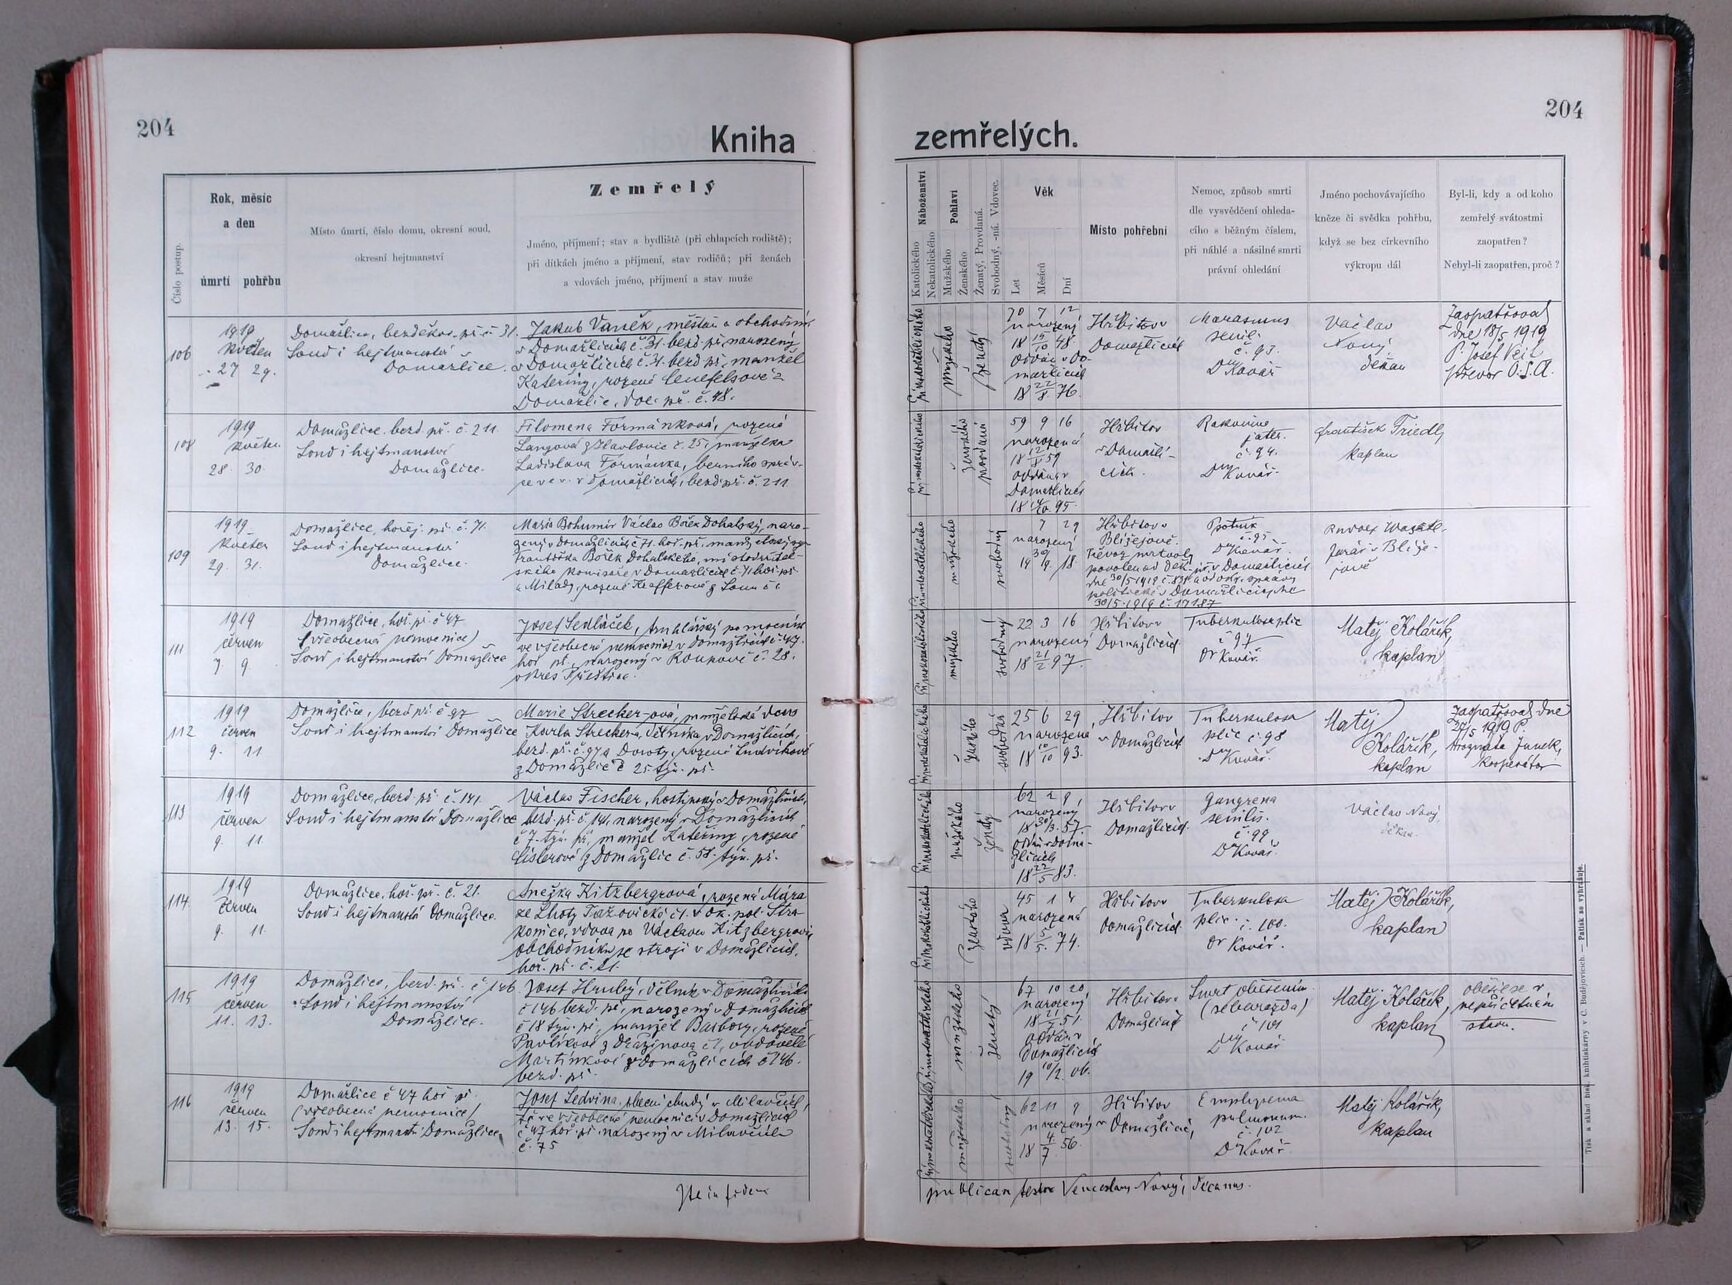 204
Kniha
Číslo postup.
Rok, měsíc
a den
úmrtí pohřbu
Místo úmrtí, číslo domu, okresní soud,
okresní hejtmanství
Zemřelý
Jméno, příjmení; stav a bydliště (při chlapcích rodiště);
při dítkách jméno a příjmení, stav rodičů; při ženách
a vdovách jméno, příjmení a stav muže
106
1919
květen
27 29.
Domažlice, bezděkov. př. č. 31.
Soud i hejtmanství
Domažlice.
Jakub Vaněk, měšťan a obchodník
v Domažlicích č. 31. bezd př., narozený
v Domažlicích č. 31. bezd př., manžel
Kateřiny, rozené
Domažlic, dol. př. č. 48.
108
1919
květen
28. 30
Domažlice. bezd. př. č. 211.
Soud i hejtmanství
Domažlice.
Filomena Formánková, rozená
Langova z Havlovic č. 25, manželka
Ladislava Formánka, berního správ-
v Domažlicích, bezd. př. č. 211
109
1919
květen
29. 31.
Domažlice, hořej. př. č. 71.
Soud i hejtmanství
Domažlice.
Mario Bohumír Václav Bořek Dohalský, naro-
zený v Domažlicích č. 71. hoř. př. manželský syn
Františka Bořek Dohalského, místodržitel-
ského komisaře v Domažlicích č. 71. hoř. př.
a Milady, rozené z Loun č. 1
111
1919
červen
7. 9
Domažlice, hoř. př. č. 47
(všeobecná nemocnice)
Soud i hejtmanství Domažlice
Josef Sedláček, truhlářský pomocník
ve všeobecné nemocnici v Domažlicích č. 47.
hoř. př., narozený v Roupově č. 28.
okres Přeštice.
112
1919
červen
9. 11
Domažlice, bezd př. č. 97
Soud i hejtmanství Domažlice
Marie Strecher-ová, manželská dcera
Karla Strechera, dělníka v Domažlicích,
berd. př. č. 97 a Doroty, rozené Ludvíkové
z Domažlic č. 25 týn. př.
113
1919
červen
9. 11
Domažlice, bezd. př. č. 141.
Soud i hejtmanství Domažlice
Václav Fischer, hostinský v Domažlicích,
bezd. př. č. 141. narozený v Domažlicích
č. 7. týn. př., manžel Kateřiny, rozené
Cislerové z Domažlic č. 58. týn. př.
114
1919
červen
9. 11.
Domažlice, hoř. př. č. 21.
Soud i hejtmanství Domažlice.
Anežka Kitzbergrová, rozená Mára
ze Lhoty Tažovické č. 1. v ok. pol. Stra-
konice, vdova po Václavu Kitzbergrovi,
obchodníku se stroji v Domažlicích,
hoř. př. č. 21.
115
1919
červen
11. 13.
Domažlice, bezd. př. č. 146
Soud i hejtmanství
Domažlice.
Josef Hrubý, dělník v Domažlicích
č. 146 bezd. př., narozený v Domažlicích
č. 18 týn. př., manžel Barbory, rozené
Pavlíkové z Dražinova č. 1, ovdovělé
Martínkové z Domažlicích č. 146.
bezd. př.
116
1919
červen
13. 15.
Domažlice č. 47 hoř. př.
(všeobecná nemocnice)
Soud i hejtmanství Domažlice
Josef Ledvina, obecní chudý v Milavčích,
ve všeobecné nemocnici v Domažlicích
č. 47 hoř. př. narozený v Milavčích
č. 75
Ita in fidem
204
zemřelých.
Náboženství
Katolického
Nekatolického
Pohlaví
Mužského
Ženského
Ženatý, Provdaná.
Svobodný, -ná. Vdovec.
Věk
Let
Měsíců
Dní
Místo pohřební
Nemoc, způsob smrti
dle vysvědčení ohleda-
cího s běžným číslem,
při náhlé a násilné smrti
právní ohledání
Jméno pochovávajícího
kněze či svědka pohřbu,
když se bez církevního
výkropu dál
Byl-li, kdy a od koho
zemřelý svátostmi
zaopatřen?
Nehyl-li zaopatřen, proč?
mužského
ženatý
70 7 12
narozený
18 15/10 48
oddán v Do-
mažlicích
18 22/8 76.
Hřbitov v
Domažlicích
Marasmus
senil.
č. 93.
Dr Kovář
Václav
Nový
děkan
Zaopatřoval
dne 18/5 1919
P. Josef Veit
převor O.S.A.
ženského
provdaná
59 9 16
narozená
18 12/8 59
oddána v
Domažlicích
18 95.
Hřbitov
v Domažli-
cích.
Rakovina
jater.
č. 94.
Dr Kovář.
František Triedl,
kaplan
mužského
svobodný
7 29
narozený
19 30/9 18
Hřbitov v
Blížejově.
Převoz mrtvoly
povolen od děk. úř. v Domažlicích
dne 30/5 1919 č. 838 a od okr. správy
politické v Domažlicích dne
30/5 1919 č. 17187
Psotník
č. 95
Dr Kovář.
farář v Blíže-
jově
mužského
svobodný
22 3 16
narozený
18 21/2 97.
Hřbitov v
Domažlicích
Tuberkulosa plic
č. 97
Dr Kovář.
Matěj Kolářík,
kaplan
ženského
svobodná
25 6 29,
narozena
18 10/10 93.
Hřbitov
v Domažlicích
Tuberkulosa
plic č. 98
Dr Kovář.
Matěj
Kolářík,
kaplan
Zaopatřoval dne
27/5 1919 P.
Hroznata Junek,
kooperátor
mužského
ženatý
62 2 9,
narozený
18 30/3. 57.
oddán v Doma-
žlicích
18 22/5 83.
Hřbitov v
Domažlicích.
Gangrena
senilis.
č. 99
Dr Kovář.
Václav Nový,
děkan.
ženského
vdova
45 1 4
narozená
18 5/5. 74.
Hřbitov v
Domažlicích
Tuberkulosa
plic. č. 100.
Dr Kovář.
Matěj Kolářík,
kaplan
mužského
ženatý
67 10 20
narozený
18 21/7 51
oddán v
Domažlicích
19 10/2. 06.
Hřbitov v
Domažlicích
Smrt oběšením
(sebevražda)
č. 101
Dr Kovář
Matěj Kolářík,
kaplan
oběsil se v
nepříčetném
stavu.
mužského
svobodný
62 11 9
narozený
18 4/7 56.
Hřbitov
v Domažlicích,
Emphysema
pulmonum.
č. 102
Dr Kovář.
Matěj Kolářík,
kaplan
publican testor Venceslaus Nový, decanus.
Tisk a sklad bisk. knihtiskárny v Č. Budějovicích. — Patisk se vyhražuje.